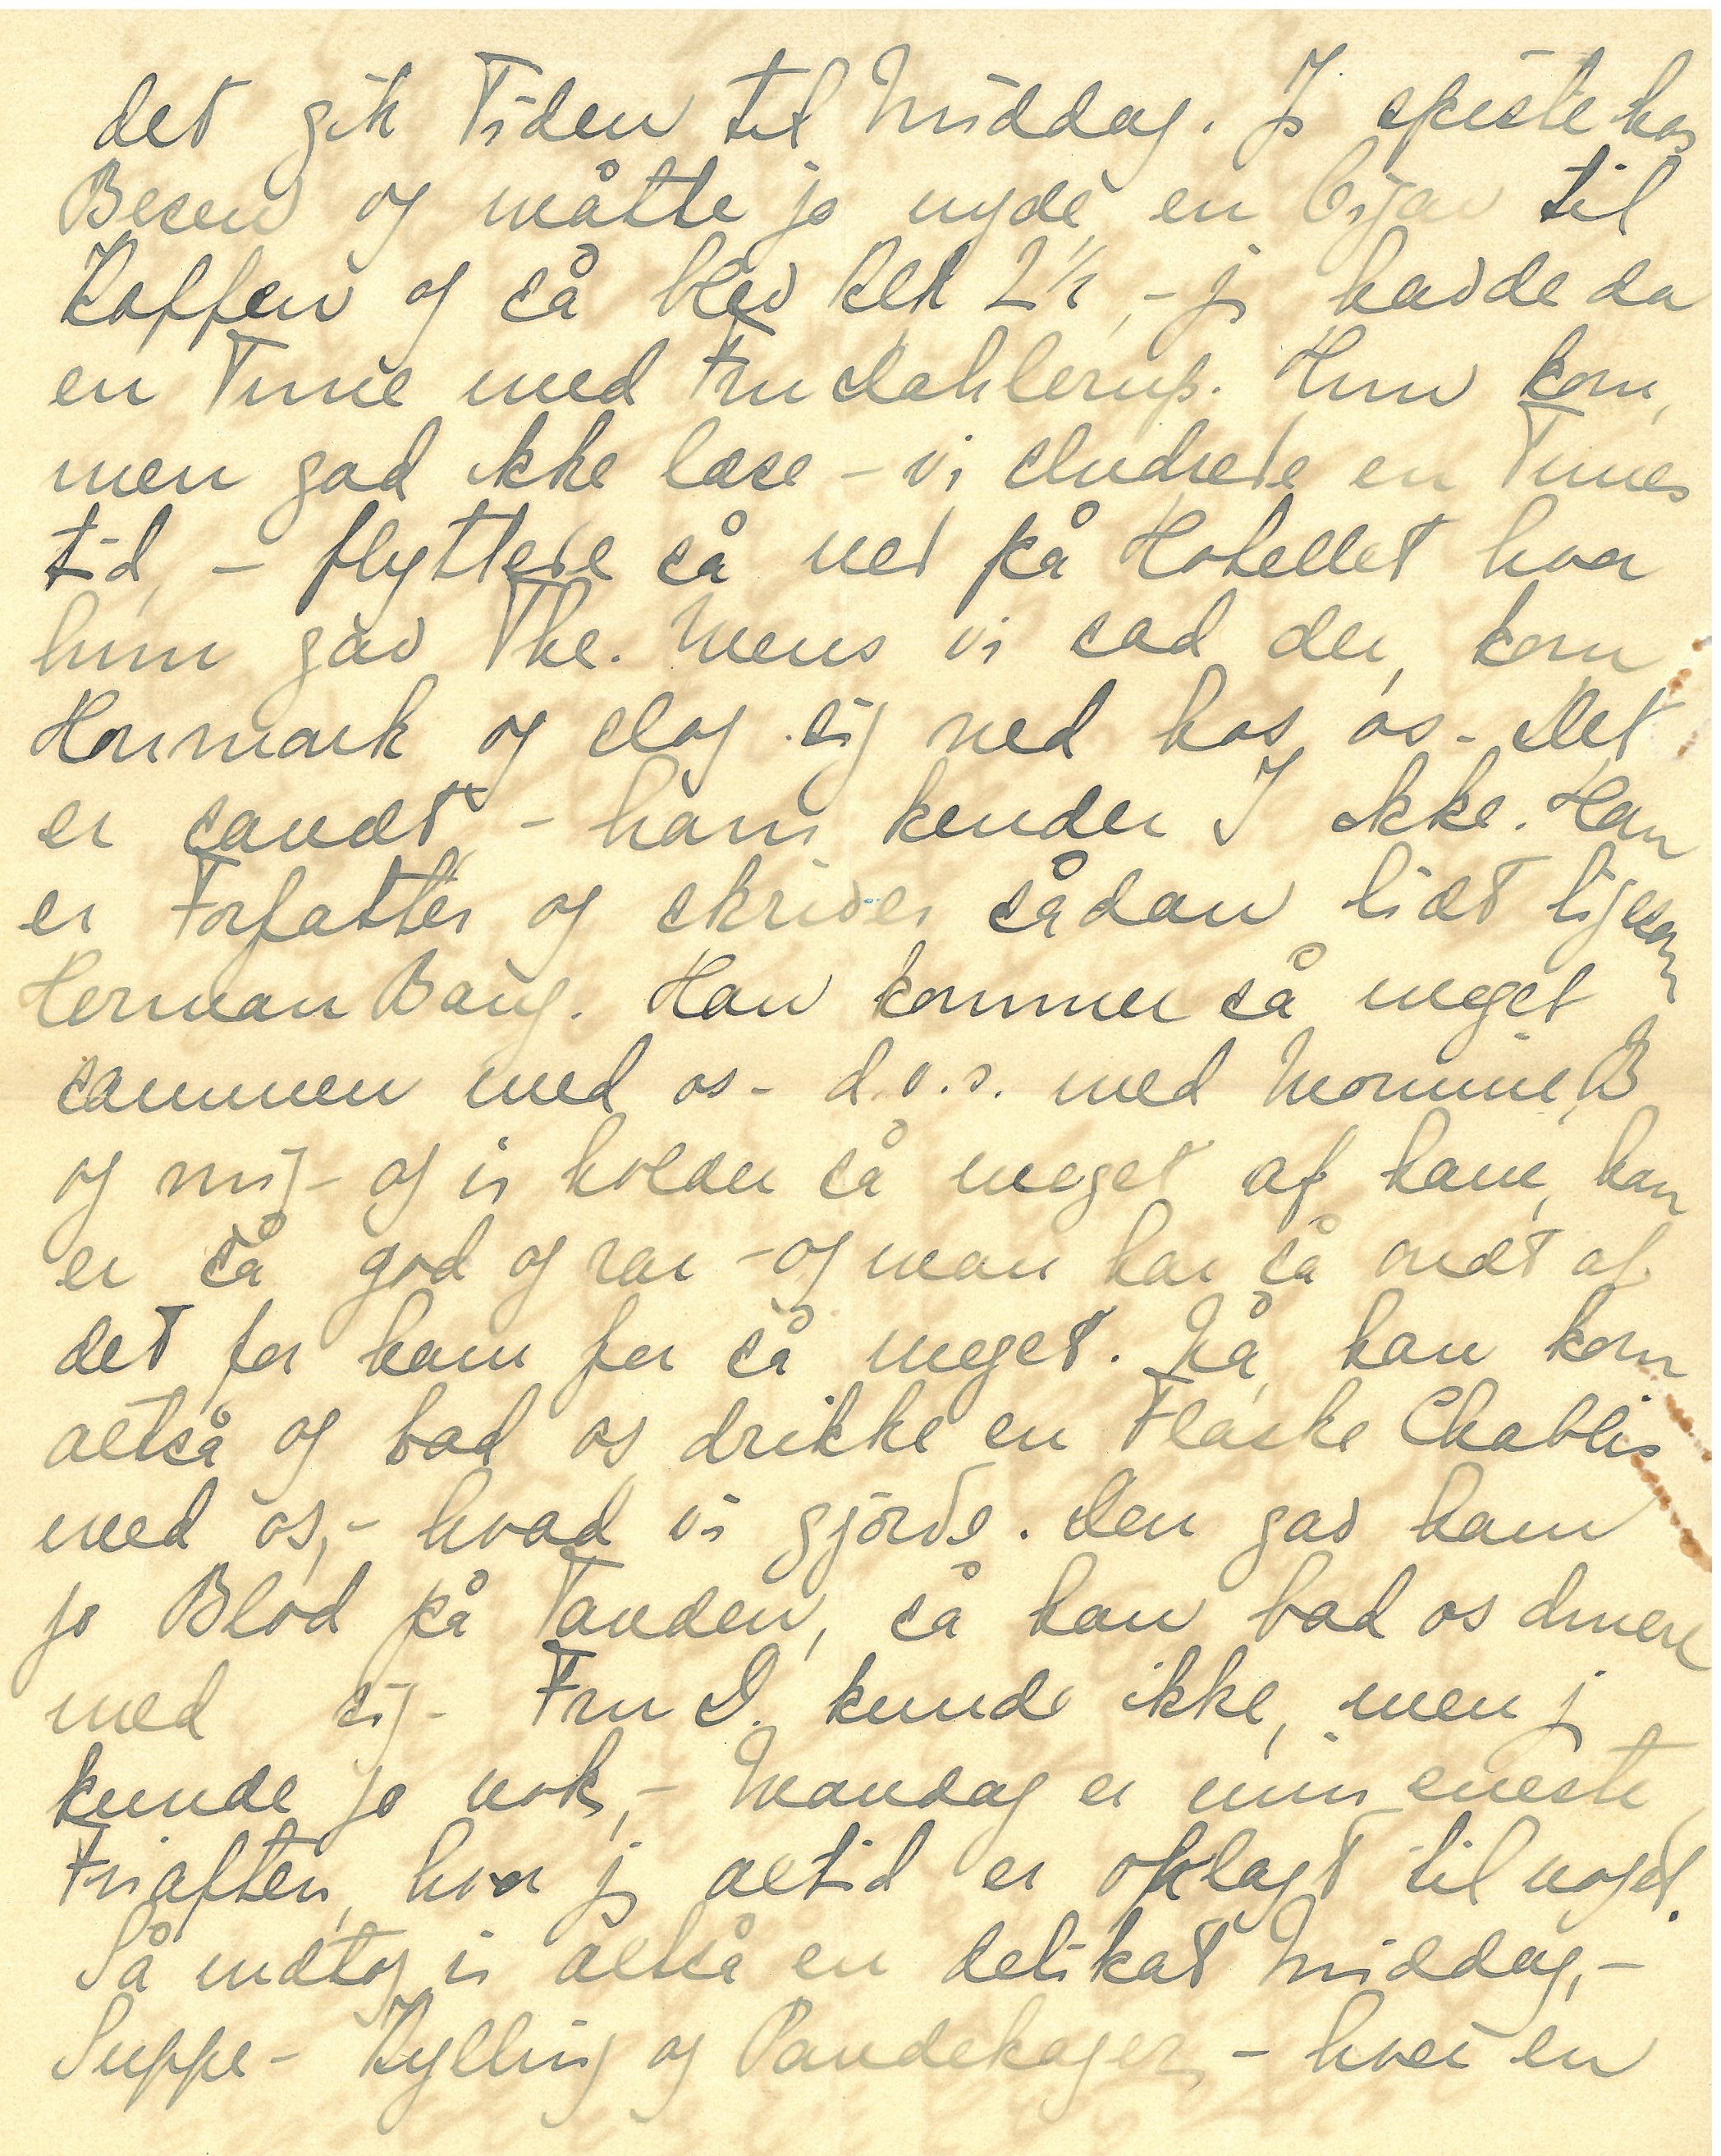 det gik Tiden til Middag. Jg spiste hos
Besen og måtte jo nyde en Cigar til
Kaffen og så blev Kl 2½, - jg havde da
en Time med Fru Dahlerup. Hun kom,
men gad ikke læse - vi sludrede en Times
tid, - flyttede så ned på Hotellet hvor
hun gav The. Mens vi sad der, kom
Hornmark og slog sig ned hos os - Det
er sandt, - ham kender I ikke. Han
er Forfatter og skriver sådan lidt ligesom
Herman Bang. Han kommer så meget
sammen med os - d.v.s. med Mornine, B
og mig - og vi holder så meget af ham, han
er så god og rar - og man har så ondt af
det for ham for så meget. Nå, han kom
altså og bad os drikke en Flaske Chablis
med os, - hvad vi gjorde. Den gav ham
jo Blod på Tanden, så han bad os dinere
med sig - Fru D. kunde ikke, men j
kunde jo nok, - Mandag er min eneste
Friaften, hvor jg altid er oplagt til noget.
Så indtog vi altså en delikat Middag, -
Suppe - Kylling og Pandekager, - hver en